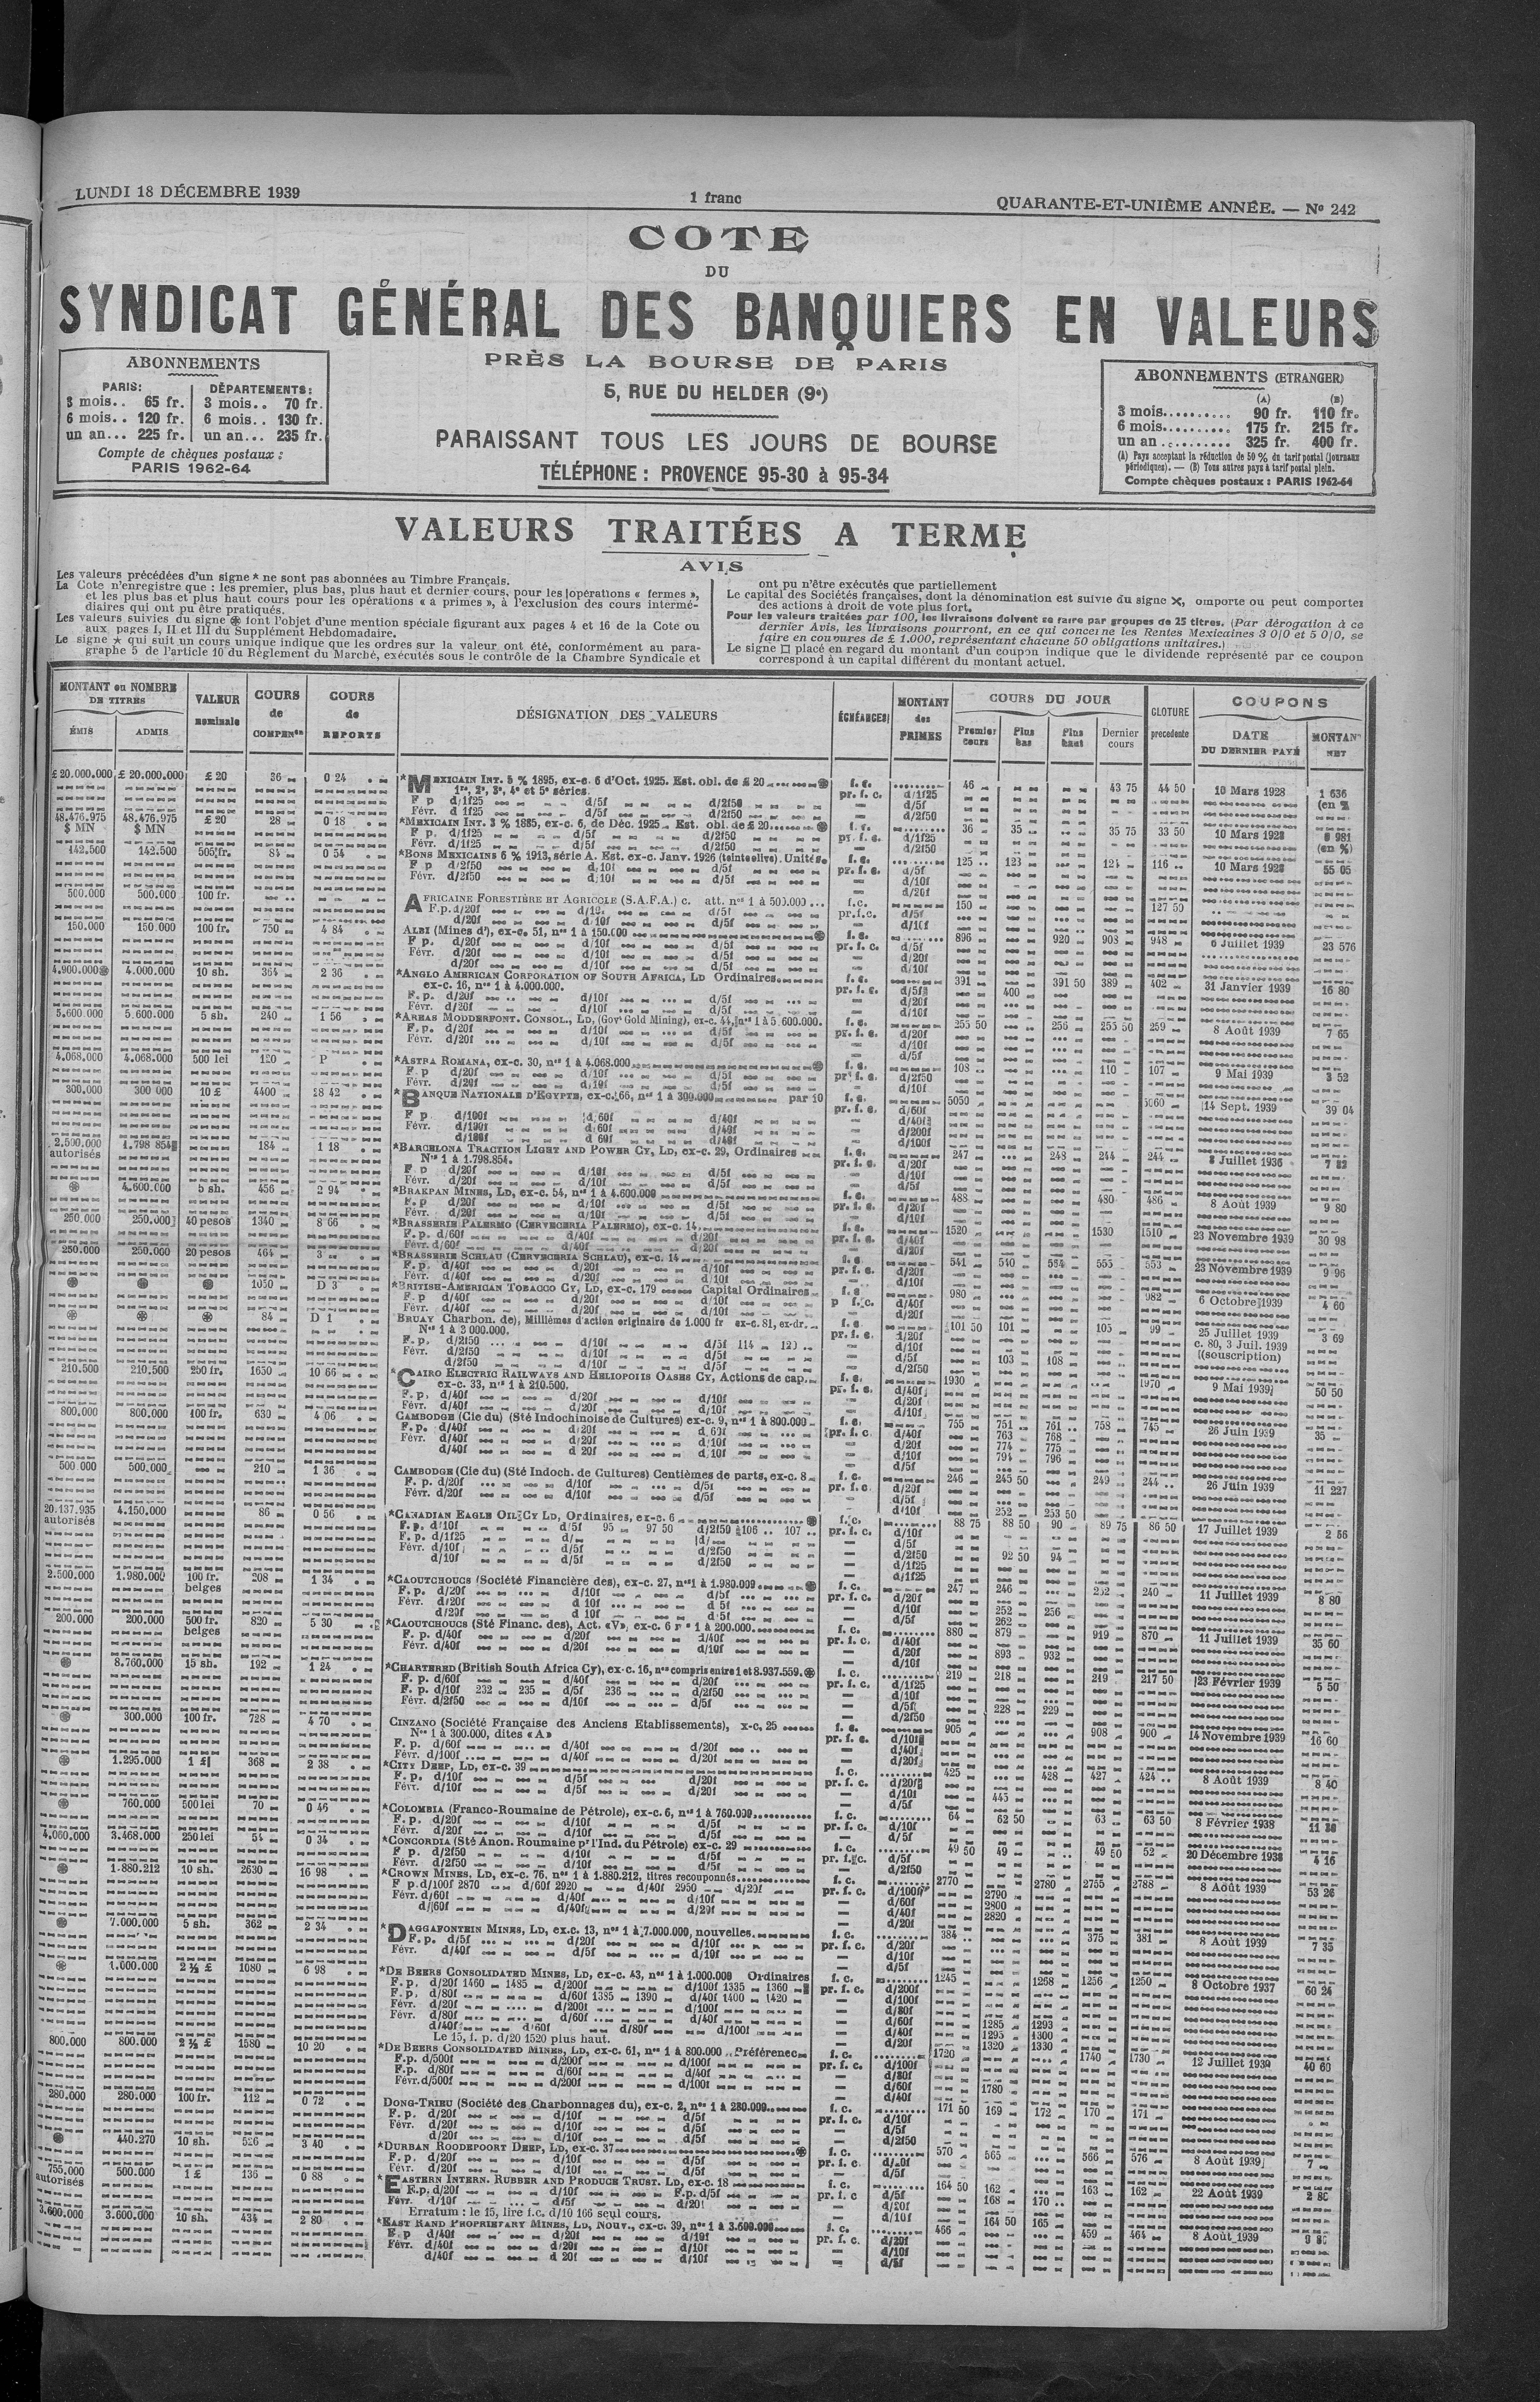 LUNDI 18 DÉCEMBRE 1939
1 franc
QUARANTE-ET-UNIÈME ANNÉE. — Nº 242
COTE
DU
SYNDICAT GÉNÉRAL DES BANQUIERS EN VALEURS
PRÈS LA BOURSE DE PARIS
5, RUE DU HELDER (9e)
PARAISSANT TOUS LES JOURS DE BOURSE
TÉLÉPHONE : PROVENCE 95-30 à 95-34
ABONNEMENTS
PARIS: DÉPARTEMENTS:
3 mois.. 65 fr. 3 mois.. 70 fr.
6 mois.. 120 fr. 6 mois.. 130 fr.
un an... 225 fr. un an... 235 fr.
Compte de chèques postaux :
PARIS 1962-64
ABONNEMENTS (ETRANGER)
(A) (B)
3 mois.......... 90 fr. 110 fr.
6 mois.......... 175 fr. 215 fr.
un an .......... 325 fr. 400 fr.
(A) Pays acceptant la réduction de 50 % du tarif postal (journaux
périodiques). — (B) Tous autres pays à tarif postal plein.
Compte chèques postaux : PARIS 1962-64
VALEURS TRAITÉES A TERME
AVIS
Les valeurs précédées d'un signe * ne sont pas abonnées au Timbre Français.
La Cote n'enregistre que : les premier, plus bas, plus haut et dernier cours, pour les opérations « fermes »,
et les plus bas et plus haut cours pour les opérations « a primes », à l'exclusion des cours intermé-
diaires qui ont pu être pratiqués.
Les valeurs suivies du signe ⊛ font l'objet d'une mention spéciale figurant aux pages 4 et 16 de la Cote ou
aux pages I, II et III du Supplément Hebdomadaire.
Le signe ★ qui suit un cours unique indique que les ordres sur la valeur ont été, conformément au para-
graphe 5 de l'article 10 du Règlement du Marché, exécutés sous le contrôle de la Chambre Syndicale et
ont pu n'être exécutés que partiellement
Le capital des Sociétés françaises, dont la dénomination est suivie du signe ✕, omporte ou peut comporter
des actions à droit de vote plus fort.
Pour les valeurs traitées par 100, les livraisons doivent se faire par groupes de 25 titres. (Par dérogation à ce
dernier Avis, les livraisons pourront, en ce qui concerne les Rentes Mexicaines 3 0/0 et 5 0/0, se
faire en coupures de £ 1.000, représentant chacune 50 obligations unitaires.)
Le signe □ placé en regard du montant d'un coupon indique que le dividende représenté par ce coupon
correspond à un capital différent du montant actuel.
MONTANT ou NOMBRE DE TITRES
ÉMIS ADMIS
VALEUR nominale
COURS de COMPENon
COURS de REPORTS
DÉSIGNATION DES VALEURS
ÉCHÉANCES
MONTANT des PRIMES
COURS DU JOUR
Premier cours Plus bas Plus haut Dernier cours
CLOTURE précédente
COUPONS
DATE DU DERNIER PAYÉ
MONTANT NET
£ 20.000.000 £ 20.000.000 £ 20 36 0 24 *MEXICAIN INT. 5 % 1895, ex-c. 6 d'Oct. 1925. Est. obl. de £ 20 f. c. 46 43 75 44 50 10 Mars 1928 1 636
1re, 2e, 3e, 4e et 5e séries. pr. f. c. d/1f25 (en %
F p d/1f25 d/5f d/2f50 d/5f
Févr. d 1f25 d/5f d/2f50 d/2f50
48.476.975 48.476.975 £ 20 28 0 18 *MEXICAIN INT. 3 % 1885, ex-c. 6, de Déc. 1925 Est. obl. de £ 20 f. c. 36 35 35 75 33 50 10 Mars 1928 981
$ MN $ MN F p. d/1f25 d/5f d/2f50 pr. f. c. d/1f25 (en %)
Févr. d/1f25 d/5f d/2f50 d/2f50
142.500 142.500 505 fr. 84 0 54 *BONS MEXICAINS 6 % 1913, série A. Est. ex-c. Janv. 1926 (teinte olive). Unités f. c. 125 123 124 116 10 Mars 1928 55 05
F p d/2f50 d/10f d/5f pr. f. c. d/5f
Févr. d/2f50 d/10f d/5f d/10f
d/20f
500.000 500.000 100 fr. AFRICAINE FORESTIÈRE ET AGRICOLE (S.A.F.A.) c. att. nos 1 à 500.000 f.c. 150 127 50
F.p. d/20f d/10f d/5f pr.f.c. d/5f
d/20f d/10f d/5f d/10f
150.000 150.000 100 fr. 750 4 84 ALBI (Mines d'), ex-c. 51, nos 1 à 150.000 f. c. 896 920 908 948 6 Juillet 1939 23 576
F p. d/20f d/10f d/5f pr. f. c. d/5f
Févr. d/20f d/10f d/5f d/20f
d/20f d/10f d/5f d/10f
4.900.000⊛ 4.000.000 10 sh. 364 2 36 *ANGLO AMERICAN CORPORATION OF SOUTH AFRICA, LD Ordinaires f. c. 391 391 50 389 402 31 Janvier 1939 16 80
ex-c. 16, nos 1 à 4.000.000. pr. f. c. d/5f 400
F. p. d/20f d/10f d/5f d/20f
Févr. d/20f d/10f d/5f d/10f
5.600.000 5.600.000 5 sh. 240 1 56 *AREAS MODDERFONT. CONSOL., LD, (Govt Gold Mining), ex-c. 44, nos 1 à 5 600.000. f. c. 255 50 256 255 50 259 8 Août 1939 7 65
F. p. d/20f d/10f d/5f pr. f. c. d/20f
Févr. d/20f d/10f d/5f d/10f
d/5f
4.068.000 4.068.000 500 lei 120 P *ASTRA ROMANA, ex-c. 30, nos 1 à 4.068.000 f. c. 108 110 107 9 Mai 1939 3 52
F. p d/20f d/10f d/5f pr. f. c. d/2f50
Févr. d/20f d/10f d/5f d/10f
300.000 300 000 10 £ 4400 28 42 *BANQUE NATIONALE D'EGYPTE, ex-c. 66, nos 1 à 300.000 par 10 f. c. 5050 5060 14 Sept. 1939 39 04
F p d/100f d/60f d/40f pr. f. c. d/60f
Févr. d/100f d/60f d/40f d/40f
d/100f d 60f d/40f d/200f
d/100f
2.500.000 1.798 854 184 1 18 *BARCELONA TRACTION LIGHT AND POWER CY, LD, ex-c. 29, Ordinaires f. c. 247 248 244 244 8 Juillet 1936
autorisés Nos 1 à 1.798.854. pr. f. c. d/20f
F p d/20f d/10f d/5f d/10f
Févr. d/20f d/10f d/5f d/5f
⊛ 4.600.000 5 sh. 456 2 94 *BRAKPAN MINES, LD, ex-c. 54, nos 1 à 4.600.000 f. c. 488 480 486 8 Août 1939 9 80
F. p d/20f d/10f d/5f pr. f. c. d/20f
Févr. d/20f d/10f d/5f d/10f
250.000 250.000 40 pesos 1340 8 66 *BRASSERIE PALERMO (CERVECERIA PALERMO), ex-c. 14 f. c. 1520 1530 1510 23 Novembre 1939 30 98
F. p. d/60f d/40f d/20f pr. f. c. d/40f
Févr. d/60f d/40f d/20f d/20f
250.000 250.000 20 pesos 464 3 *BRASSERIE SCHLAU (CERVECERIA SCHLAU), ex-c. 14 f. c 541 540 554 555 553 23 Novembre 1939 9 96
F. p. d/40f d/20f d/10f pr. f. c. d/20f
Févr. d/40f d/20f d/10f d/10f
⊛ ⊛ ⊛ 1050 D 3 *BRITISH-AMERICAN TOBACCO CY, LD, ex-c. 179 Capital Ordinaires f. c 980 982 6 Octobre 1939 4 60
F. p d/40f d/20f d/10f p f. c. d/40f
Févr. d/40f d/20f d/10f d/20f
⊛ ⊛ ⊛ 84 D 1 BRUAY Charbon. de), Millièmes d'action originaire de 1.000 fr ex-c. 81, ex-dr. f. c 101 50 101 105 99 25 Juillet 1939 3 69
Nos 1 à 3 000.000. pr. f. c. d/20f c. 80, 3 Juil. 1939
F. p. d/2f50 d/10f d/5f 114 120 d/10f (souscription)
Févr. d/2f50 d/10f d/5f d/5f 103 108
d/2f50 d/10f d/5f d/2f50
210.500 210.500 250 fr. 1650 10 66 *CAIRO ELECTRIC RAILWAYS AND HELIOPOLIS OASES CY, Actions de cap. f. c. 1930 1970 9 Mai 1939 50 50
ex-c. 33, nos 1 à 210.500. pr. f. c. d/40f
F. p. d/40f d/20f d/10f d/20f
Févr. d/40f d/20f d/10f d/10f
800.000 800.000 100 fr. 630 4 06 CAMBODGE (Cie du) (Sté Indochinoise de Cultures) ex-c. 9, nos 1 à 800.000 f. c. 755 751 761 758 745 26 Juin 1939 35
F. p. d/40f d/20f d 60f pr. f. c. d/40f 763 768
Févr. d/40f d/20f d/10f d/20f 774 775
d/40f d 20f d/10f d/10f 794 796
d/5f
500 000 500.000 210 1 36 CAMBODGE (Cie du) (Sté Indoch. de Cultures) Centièmes de parts, ex-c. 8 f. c. 246 245 50 249 244 26 Juin 1939 11 227
F. p. d/20f d/10f d/5f pr. f. c. d/20f
Févr. d/20f d/10f d/5f d/5f
d/10f 252 253 50
20.137.935 4.150.000 86 0 56 *CANADIAN EAGLE OIL CY LD, Ordinaires, ex-c. 6 f. c. 88 75 88 50 90 89 75 86 50 17 Juillet 1939 2 56
autorisés F. p. d/10f d/5f 95 97 50 d/2f50 106 107 pr. f. c. d/10f
F. p. d/1f25 d/ d/ d/5f
Févr. d/10f d/5f d/2f50 d/2f50 92 50 94
d/10f d/5f d/2f50 d/1f25
d/1f25
2.500.000 1.980.000 100 fr. 208 1 34 *CAOUTCHOUCS (Société Financière des), ex-c. 27, nos 1 à 1.980.000 f. c. 247 246 252 240 11 Juillet 1939 8 80
belges F. p. d/20f d/10f d/5f pr. f. c. d/20f
Févr. d/20f d 10f d 5f d/10f 252 256
d/20f d 10f d/5f d/5f 262
200.000 200.000 500 fr. 820 5 30 *CAOUTCHOUCS (Sté Financ. des), Act. «V», ex-c. 6 nos 1 à 200.000 f. c. 880 879 919 870 11 Juillet 1939 35 60
belges F. p. d/40f d/20f d/40f pr. f. c. d/40f
Févr. d/40f d/20f d/10f d/20f 893 932
d/10f
⊛ 8.760.000 15 sh. 192 1 24 *CHARTERED (British South Africa Cy), ex-c. 16, nos compris entre 1 et 8.937.559. ⊛ f. c. 219 218 219 217 50 23 Février 1939 5 50
F. p. d/60f d/40f d/20f pr. f. c. d/1f25
F. p. d/10f 232 235 d/5f 236 d/2f50 d/10f
Févr. d/2f50 d/10f d/5f d/5f 228 229
d/2f50
⊛ 300.000 100 fr. 728 4 70 CINZANO (Société Française des Anciens Etablissements), x-c. 25 f. c. 905 908 900 14 Novembre 1939 16 60
Nos 1 à 300.000, dites «A» pr. f. c. d/10f
F. p. d/60f d/40f d/20f d/40f
Févr. d/100f d/40f d/20f d/20f
⊛ 1.295.000 1 £ 368 2 38 *CITY DEEP, LD, ex-c. 39 f. c. 425 428 427 424 8 Août 1939 8 40
F. p. d/10f d/5f d/20f pr. f. c. d/20f
Févr. d/10f d/5f d/20f d/10f 445
d/5f
⊛ 760.000 500 lei 70 0 46 *COLOMBIA (Franco-Roumaine de Pétrole), ex-c. 6, nos 1 à 760.000 f. c. 64 62 50 63 63 50 8 Février 1938
F. p. d/20f d/10f d/5f pr. f. c. d/10f
Févr. d/20f d/10f d/5f d/5f
4.060.000 3.468.000 250 lei 54 0 34 *CONCORDIA (Sté Anon. Roumaine pr l'Ind. du Pétrole) ex-c. 29 f. c. 49 50 49 49 50 52 20 Décembre 1938 4 16
F. p d/2f50 d/10f d/5f pr. f. c. d/5f
Févr. d/2f50 d/10f d/5f d/2f50
⊛ 1.880.212 10 sh. 2630 16 98 *CROWN MINES, LD, ex-c. 76, nos 1 à 1.880.212, titres recouponnés f. c. 2770 2780 2755 2788 8 Août 1939 53 26
F p. d/100f 2870 d/60f 2920 d/40f 2950 d/20f pr. f. c. d/100f 2790
Févr. d/60f d/40f d/10f d/60f 2800
d/60f d/40f d/20f d/40f 2820
d/20f
⊛ 7.000.000 5 sh. 362 2 34 *DAGGAFONTEIN MINES, LD, ex-c. 13, nos 1 à 7.000.000, nouvelles f. c. 384 375 381 8 Août 1939 7 35
F. p. d/5f d/20f d/10f pr. f. c. d/20f
Févr. d/40f d/5f d/10f d/10f
d/5f
⊛ 1.000.000 2 ½ £ 1080 6 98 *DE BEERS CONSOLIDATED MINES, LD, ex-c. 43, nos 1 à 1.000.000 Ordinaires f. c. 1245 1268 1256 1250 8 Octobre 1937 60 24
F. p. d/20f 1460 1485 d/200f d/100f 1335 1360 pr. f. c. d/200f
F. p. d/80f d/60f 1385 1390 d/40f 1400 1420 d/100f
Févr. d/20f d/200f d/100f d/80f
Févr. d/80f d/60f d/40f d/60f 1285 1293
d/40f d/60f d/80f d/100f d/40f 1295 1300
Le 15, f. p. d/20 1520 plus haut. d/20f 1320 1330
800.000 800.000 2 ½ £ 1580 10 20 *DE BEERS CONSOLIDATED MINES, LD, ex-c. 61, nos 1 à 800.000 Préférence f. c. 1720 1740 1730 12 Juillet 1939 40 60
F.p. d/500f d/200f d/100f pr. f. c. d/100f
F.p. d/80f d/60f d/40f d/80f
Févr. d/500f d/200f d/100f d/60f 1780
d/40f
280.000 280.000 100 fr. 112 0 72 DONG-TRIEU (Société des Charbonnages du), ex-c. 2, nos 1 à 280.000 f. c. 171 50 169 172 170 171
F. p. d/20f d/10f d/5f pr. f. c. d/10f
Févr. d/20f d/10f d/5f d/5f
d/20f d/10f d/5f d/2f50
⊛ 440.270 10 sh. 526 3 40 *DURBAN ROODEPOORT DEEP, LD, ex-c. 37 f. c. 570 565 566 576 8 Août 1939 7
F. p. d/20f d/10f d/5f pr. f. c.
Févr. d/20f d/10f d/5f d/5f
755.000 500.000 1 £ 136 0 88 *EASTERN INTERN. RUBBER AND PRODUCE TRUST. LD, ex-c. 18 f. c. 164 50 162 163 162 22 Août 1939 2 80
autorisés F.p. d/20f d/10f F.p. d/5f pr. f. c d/5f 168 170
Févr. d/10f d/5f d/20f d/20f
Erratum : le 15, lire f.c. d/10 166 seul cours. d/10f 164 50 165
3.600.000 3.600.000 10 sh. 434 2 80 *EAST RAND PROPRIETARY MINES, LD, NOUV., ex-c. 39, nos 1 à 3.600.000 f. c. 466 459 464 8 Août 1939
F. p d/40f d/20f d/10f pr. f. c. d/20f
Févr. d/40f d/20f d/10f d/10f
d/40f d 20f d/10f d/5f